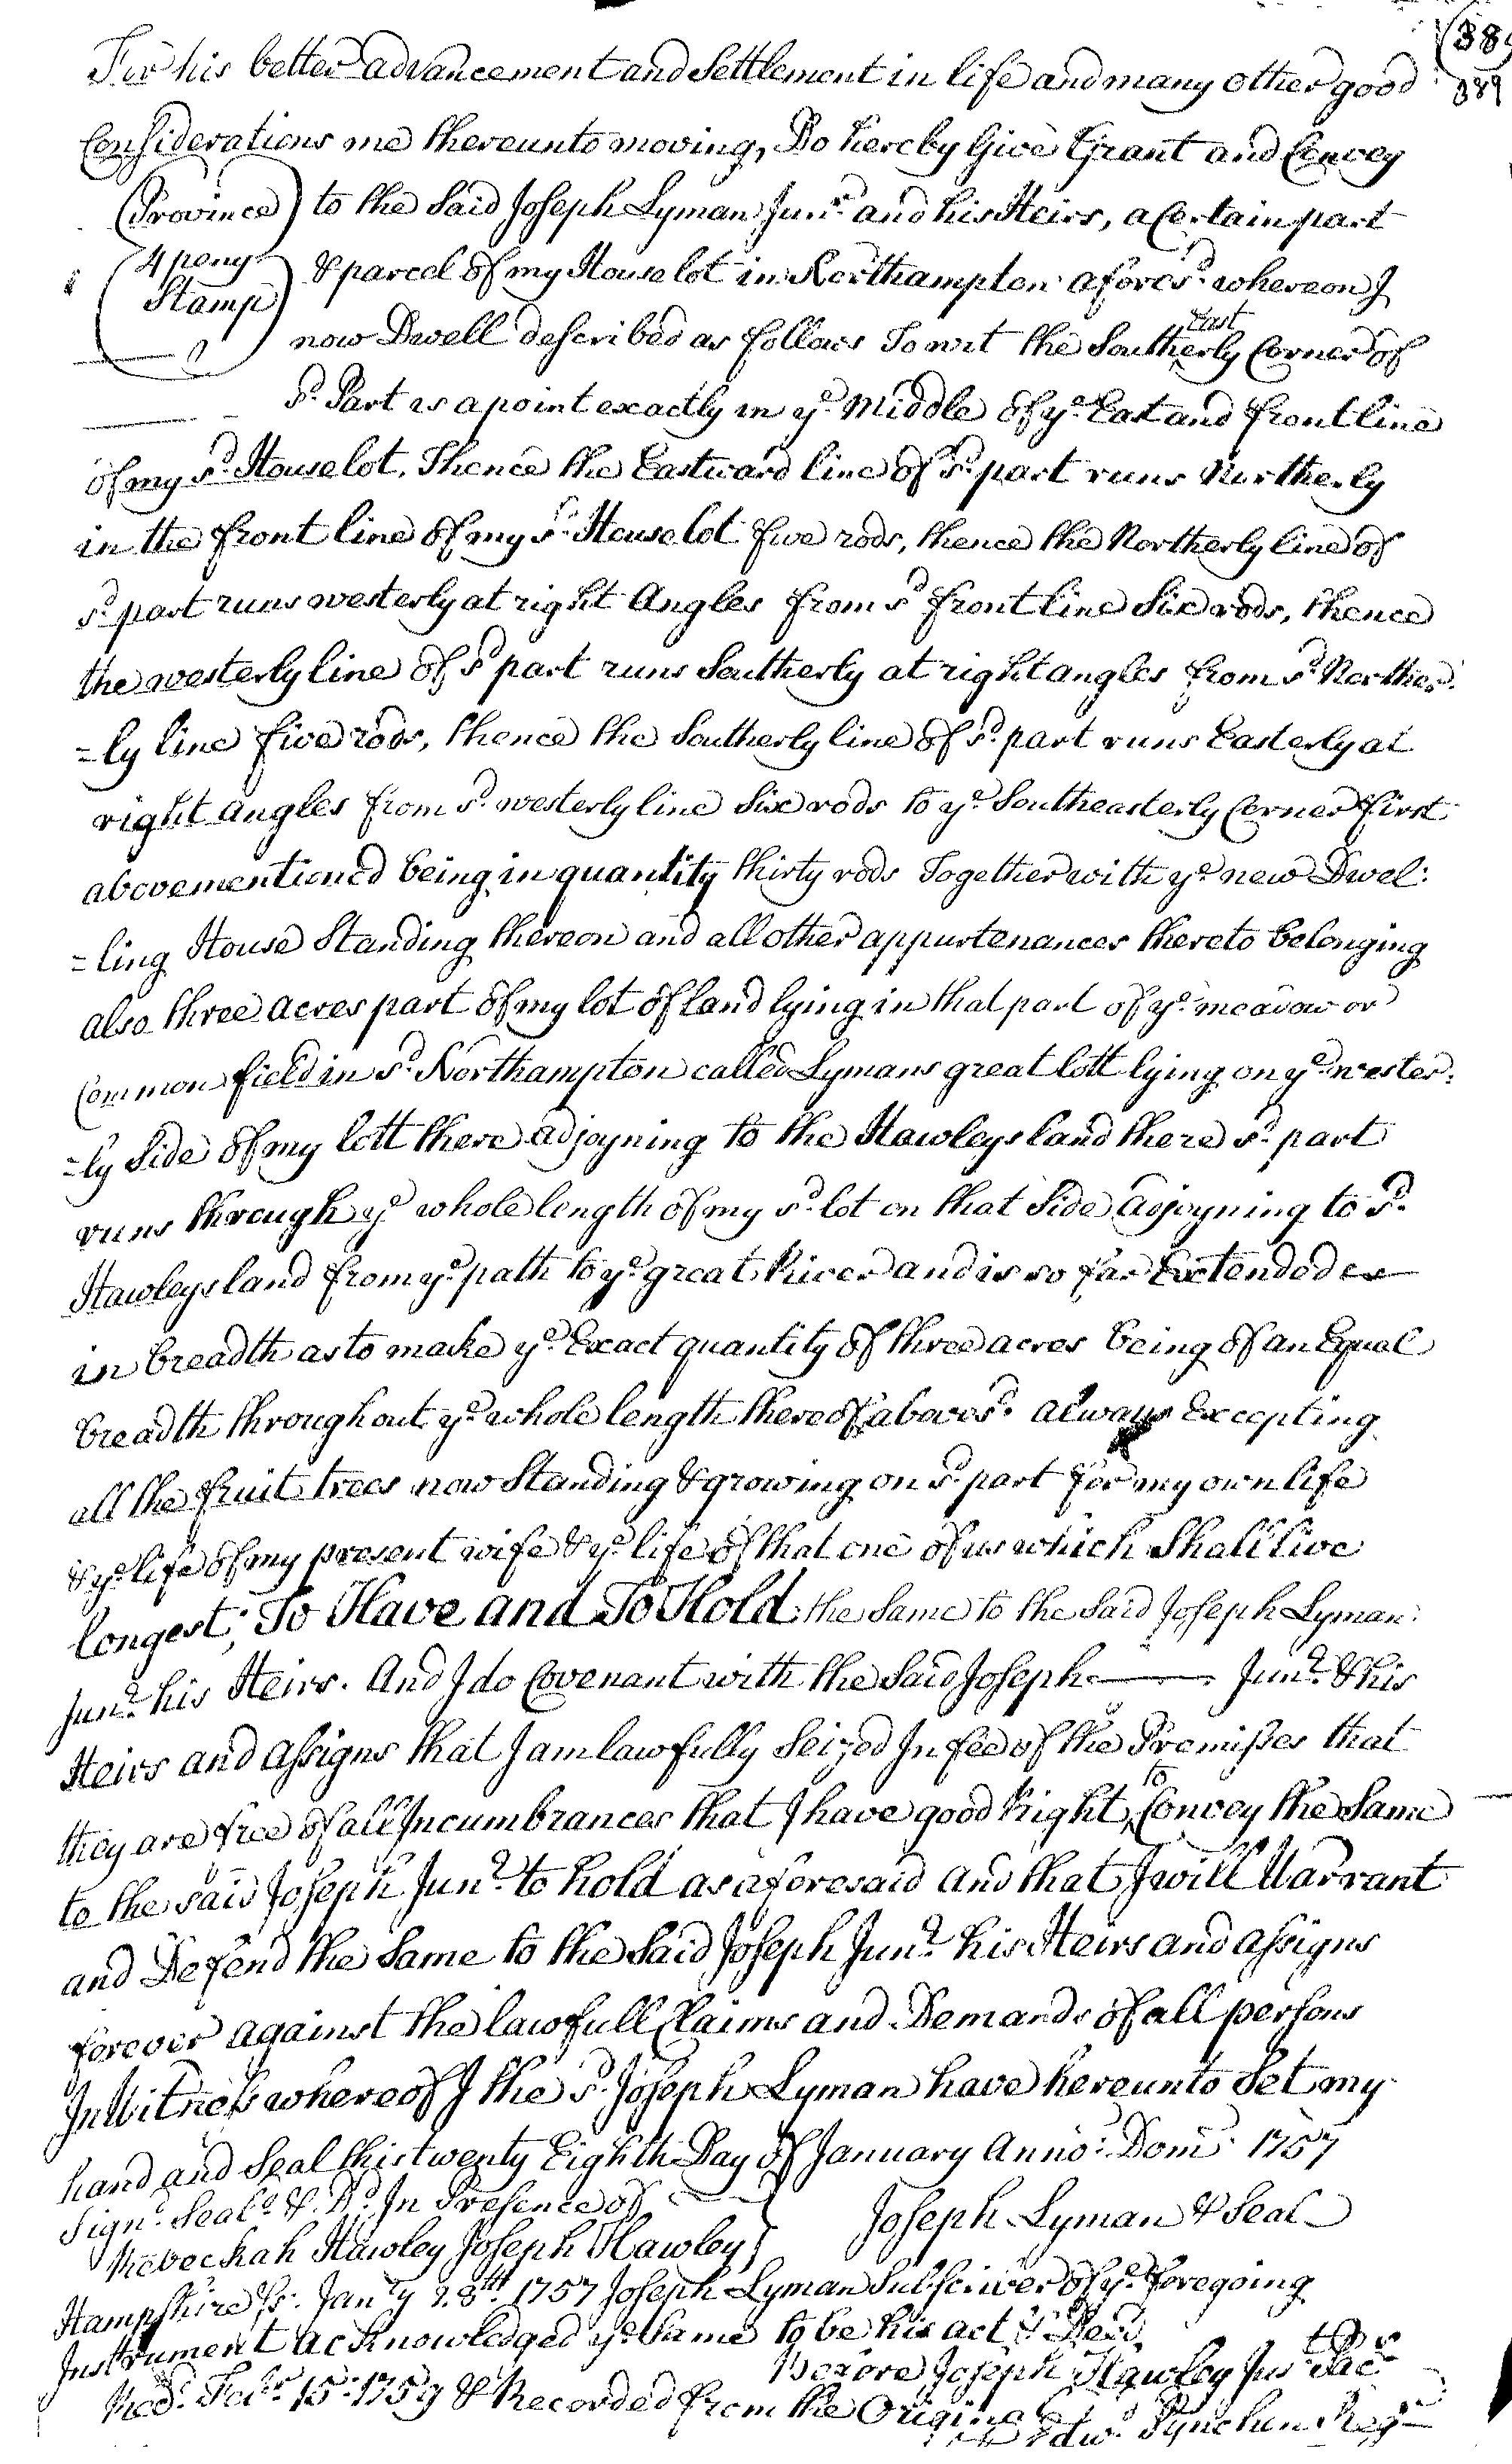 (389
389
For his better advancement and Settlement in life and many other good
Considerations me thereunto moving, Do hereby Give Grant and Convey
(Province) to the Said Joseph Lyman Junr. and his Heirs, a Certain part
4 peny & parcel of my House lot in Northampton aforesd. whereon I
Stamp
now Dwell described as follows To wit the Southeasterly Corner of
sd. Part is a point exactly in ye. Middle of ye. East and front line
of my sd. House lot, Thence the Eastward line of sd. part runs Northerly
in the front line of my sd. House lot five rods, thence the Northerly line of
sd. part runs westerly at right Angles from sd front line Six rods, thence
the westerly line of sd part runs Southerly at right angles from sd. Norther-
=ly line five rods, thence the Southerly line of sd. part runs Easterly at
right angles from sd. westerly line Six rods to ye. Southeasterly Corner first
abovementioned being in quantity thirty rods Together with ye. new Dwel:
=ling House Standing thereon and all other appurtenances thereto belonging
also three acres part of my lot of land lying in that part of ye. meadow or
Common field in sd. Northampton called Lymans great lott lying on ye. wester:
=ly Side of my lott there adjoyning to the Hawleys land there sd. part
runs through ye whole length of my sd. lot on that Side adjoyning to sd.
Hawleys land from ye. path to ye. great River and is so far Extended ex
in breadth as to make ye. Exact quantity of three acres being of an Equal
breadth throughout ye. whole length thereof abovesd. always Excepting
all the fruit trees now Standing & growing on sd. part for my own life
& ye. life of my present wife & ye. life of that one of us which Shall live
longest; To Have and To Hold the Same to the Said Joseph Lyman
Junr. his Heirs. And I do Covenant with the Said Joseph —— Junr. & his
Heirs and assigns that I am lawfully Seized In fee of the Premises that
they are free of all Incumbrances that I have good Right to Convey the Same
to the said Joseph Junr. to hold as aforesaid and that I will Warrant
and Defend the Same to the Said Joseph Junr. his Heirs and assigns
forever against the lawfull Claims and Demands of all persons
In Witness whereof I the sd. Joseph Lyman have hereunto Set my
hand and Seal this twenty Eighth Day of January Anno: Dom: 1757
Signd. Seald. & Dd. In Presence of
Joseph Lyman & Seal
Rebeckah Hawley Joseph Hawley
Hampshire ss. Jany 28th. 1757 Joseph Lyman Subscriber of ye. foregoing
Instrument acknowledged ye. Same to be his act & Deed.
Before Joseph Hawley Jus: Pac
Recd. Febr. 15: 1759 & Recorded from the Original
Edwd. Pynchon Regr